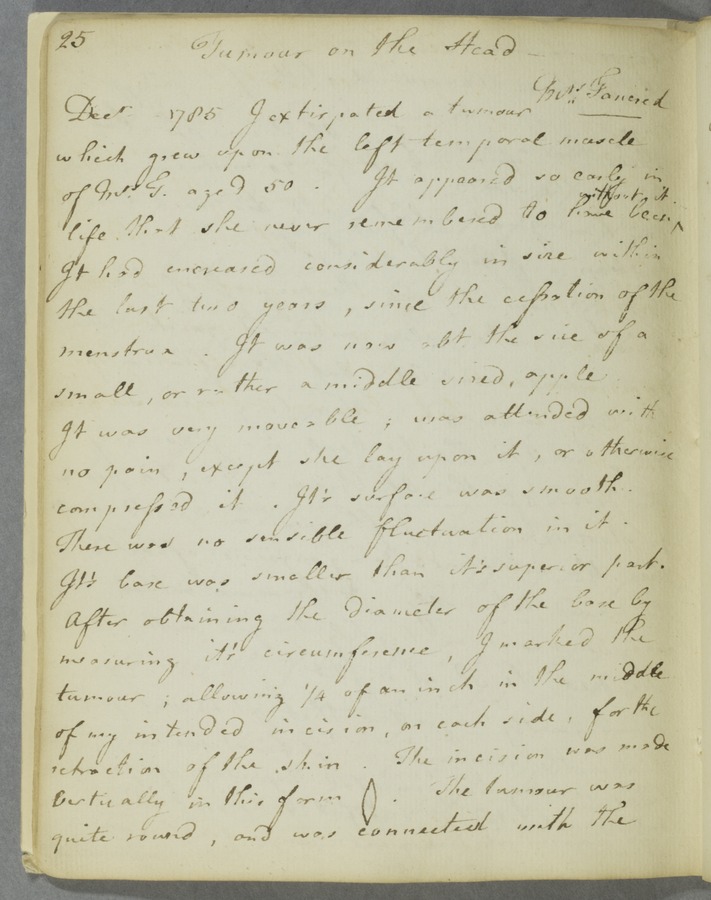 25
Tumour on the Head —
Mrs. Tancred
Decr. 1785 I extirpated a tumour
which grew upon the left temporal muscle
of Mrs. G. aged 50. It appeared so early in
life that she never remembered to have been,
without it
It had encreased considerably in size within
the last two years, since the cessation of the
menstrua. It was now abt the size of a
small, or rather a middle sized, apple
It was very moveable; was attended with
no pain, except she lay upon it, or otherwise
compressed it. It's surface was smooth.
There was no sensible fluctuation in it.
It's base was smaller than it's superior part.
After obtaining the diameter of the base by
measuring it's circumference, I marked the
tumour; allowing 1/4 of an inch in the middle
of my intended incision, on each side, for the
retraction of the skin. The incision was made
vertically in this form . The tumour was
quite round, and was connected with the